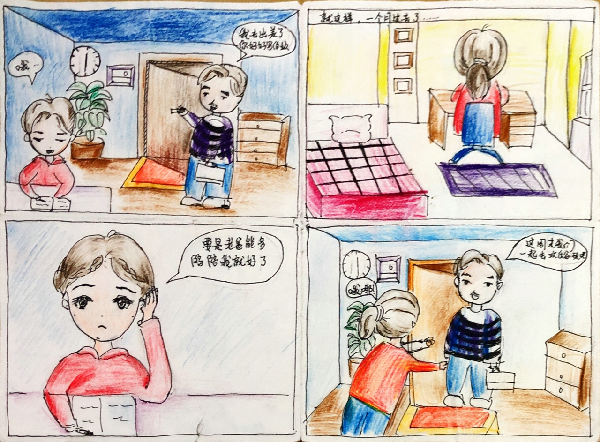 哦…
我去出差了
你好好写作业
就这样，一个月过去了……
要是老爸能多
陪陪我就好了
哦耶!
这周末我们
一起去